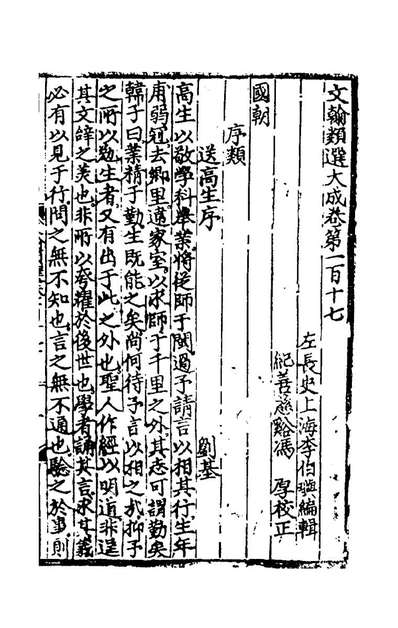 文翰類選大成卷第一百十七
左長史上海李伯璵編輯
紀善慈谿馮厚校正
國朝
序類
送高生序 劉基
高生以敬學科舉業將從師于閩過予請言以相其行生年
甫弱冠去鄉里違家室以求師于千里之外其志可謂勤矣
韓子曰業精于勤生既能之矣尚何待予言以相之哉抑予
之所以勉生者又有出于此之外也聖人作經以明道非逞
其文辝之美也非所以夸耀於後世也學者誦其言求其義
必有以見于行問之無不知也言之無不通也驗之於事則